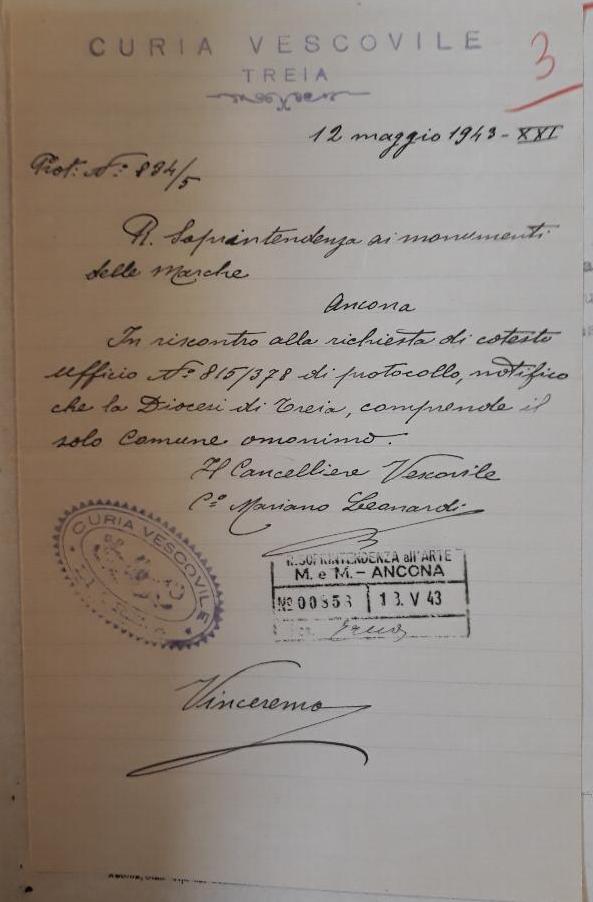 CURIA VESCOVILE
TREIA
3
12 maggio 1943 - XXI
Prot. N: 894/5
R. Soprintendenza ai monumenti
delle Marche
Ancona
In riscontro alla richiesta di cotesto
ufficio N° 815/378 di protocollo, notifico
che la Diocesi di Treia, comprende il
solo Comune omonimo.
Il Cancelliere Vescovile
C.° Mariano Leonardi
CURIA VESCOVILE
R. SOPRINTENDENZA all'ARTE
M. e M. - ANCONA
No 00856 13. V 43
Vinceremo